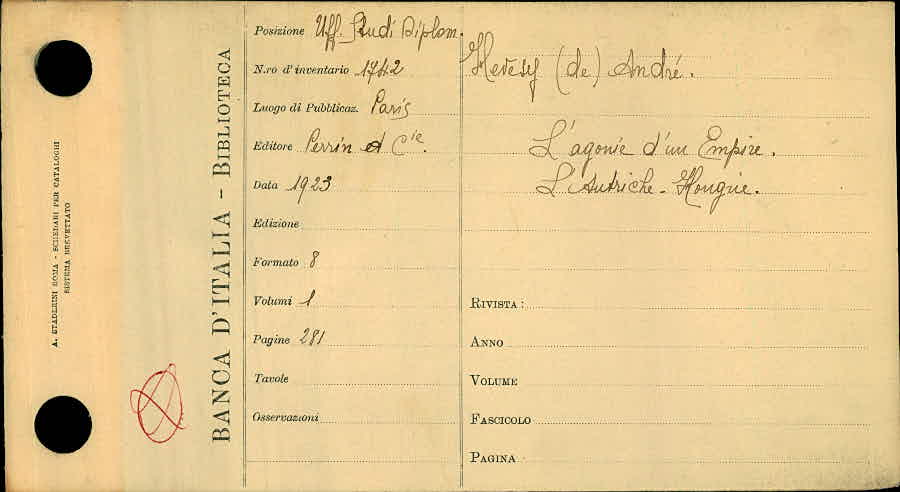 A. STADERINI ROMA - SCHEDARI PER CATALOGHI
SISTEMA BREVETTATO
BANCA D'ITALIA - BIBLIOTECA
Posizione Uff. Studi Diplom.
N.ro d'inventario 1742
Luogo di Pubblicaz. Paris
Editore Perrin et Cie.
Data 1923
Edizione
Formato 8
Volumi 1
Pagine 281
Tavole
Osservazioni
Hevesy (de) André.
L'agonie d'un Empire.
L'Autriche-Hongrie.
RIVISTA:
ANNO
VOLUME
FASCICOLO
PAGINA